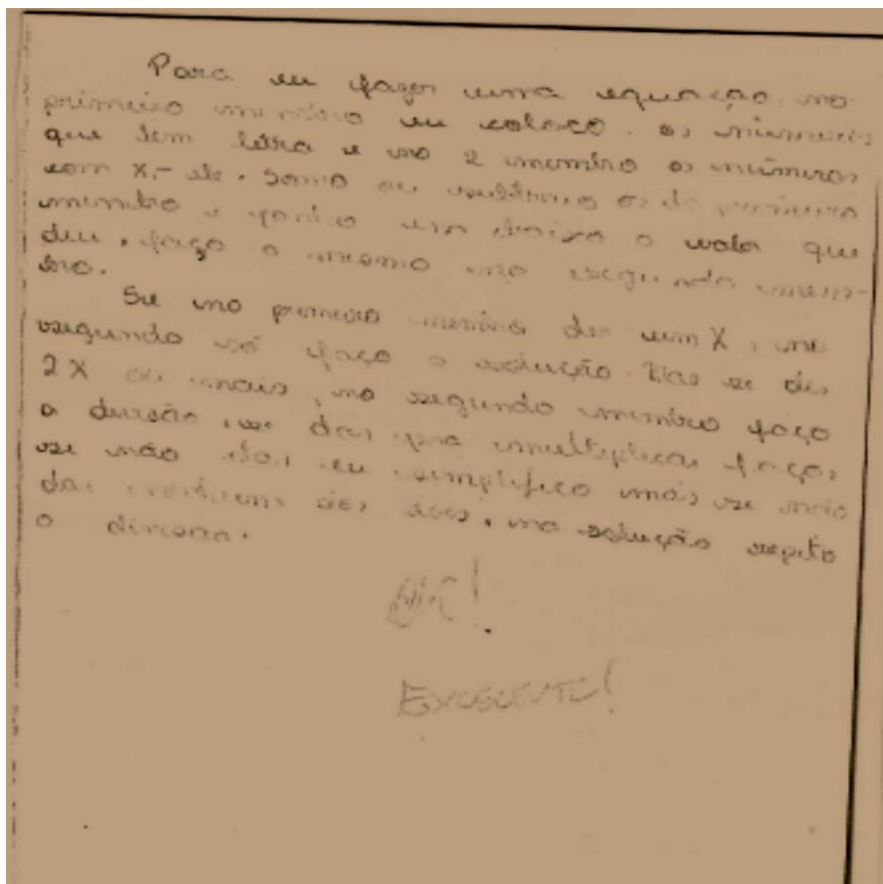 Para eu fazer uma equação, no
primeiro membro eu coloco os números
que tem letra e no 2 membro os números
com X,- etc. Somo ou subtraio os do primeiro
membro e ponho em baixo o valor que
deu, faço o mesmo no segundo mem-
bro.
Se no primeiro membro der um X, no
segundo só faço a solução. Mas se der
2X ou mais, no segundo membro faço
a divisão, se dar pra multiplicar faço,
se não dar eu simplifico mas se não
dar nenhum dos dois, na solução repito
a divisão.
Ok!
EXCELENTE!